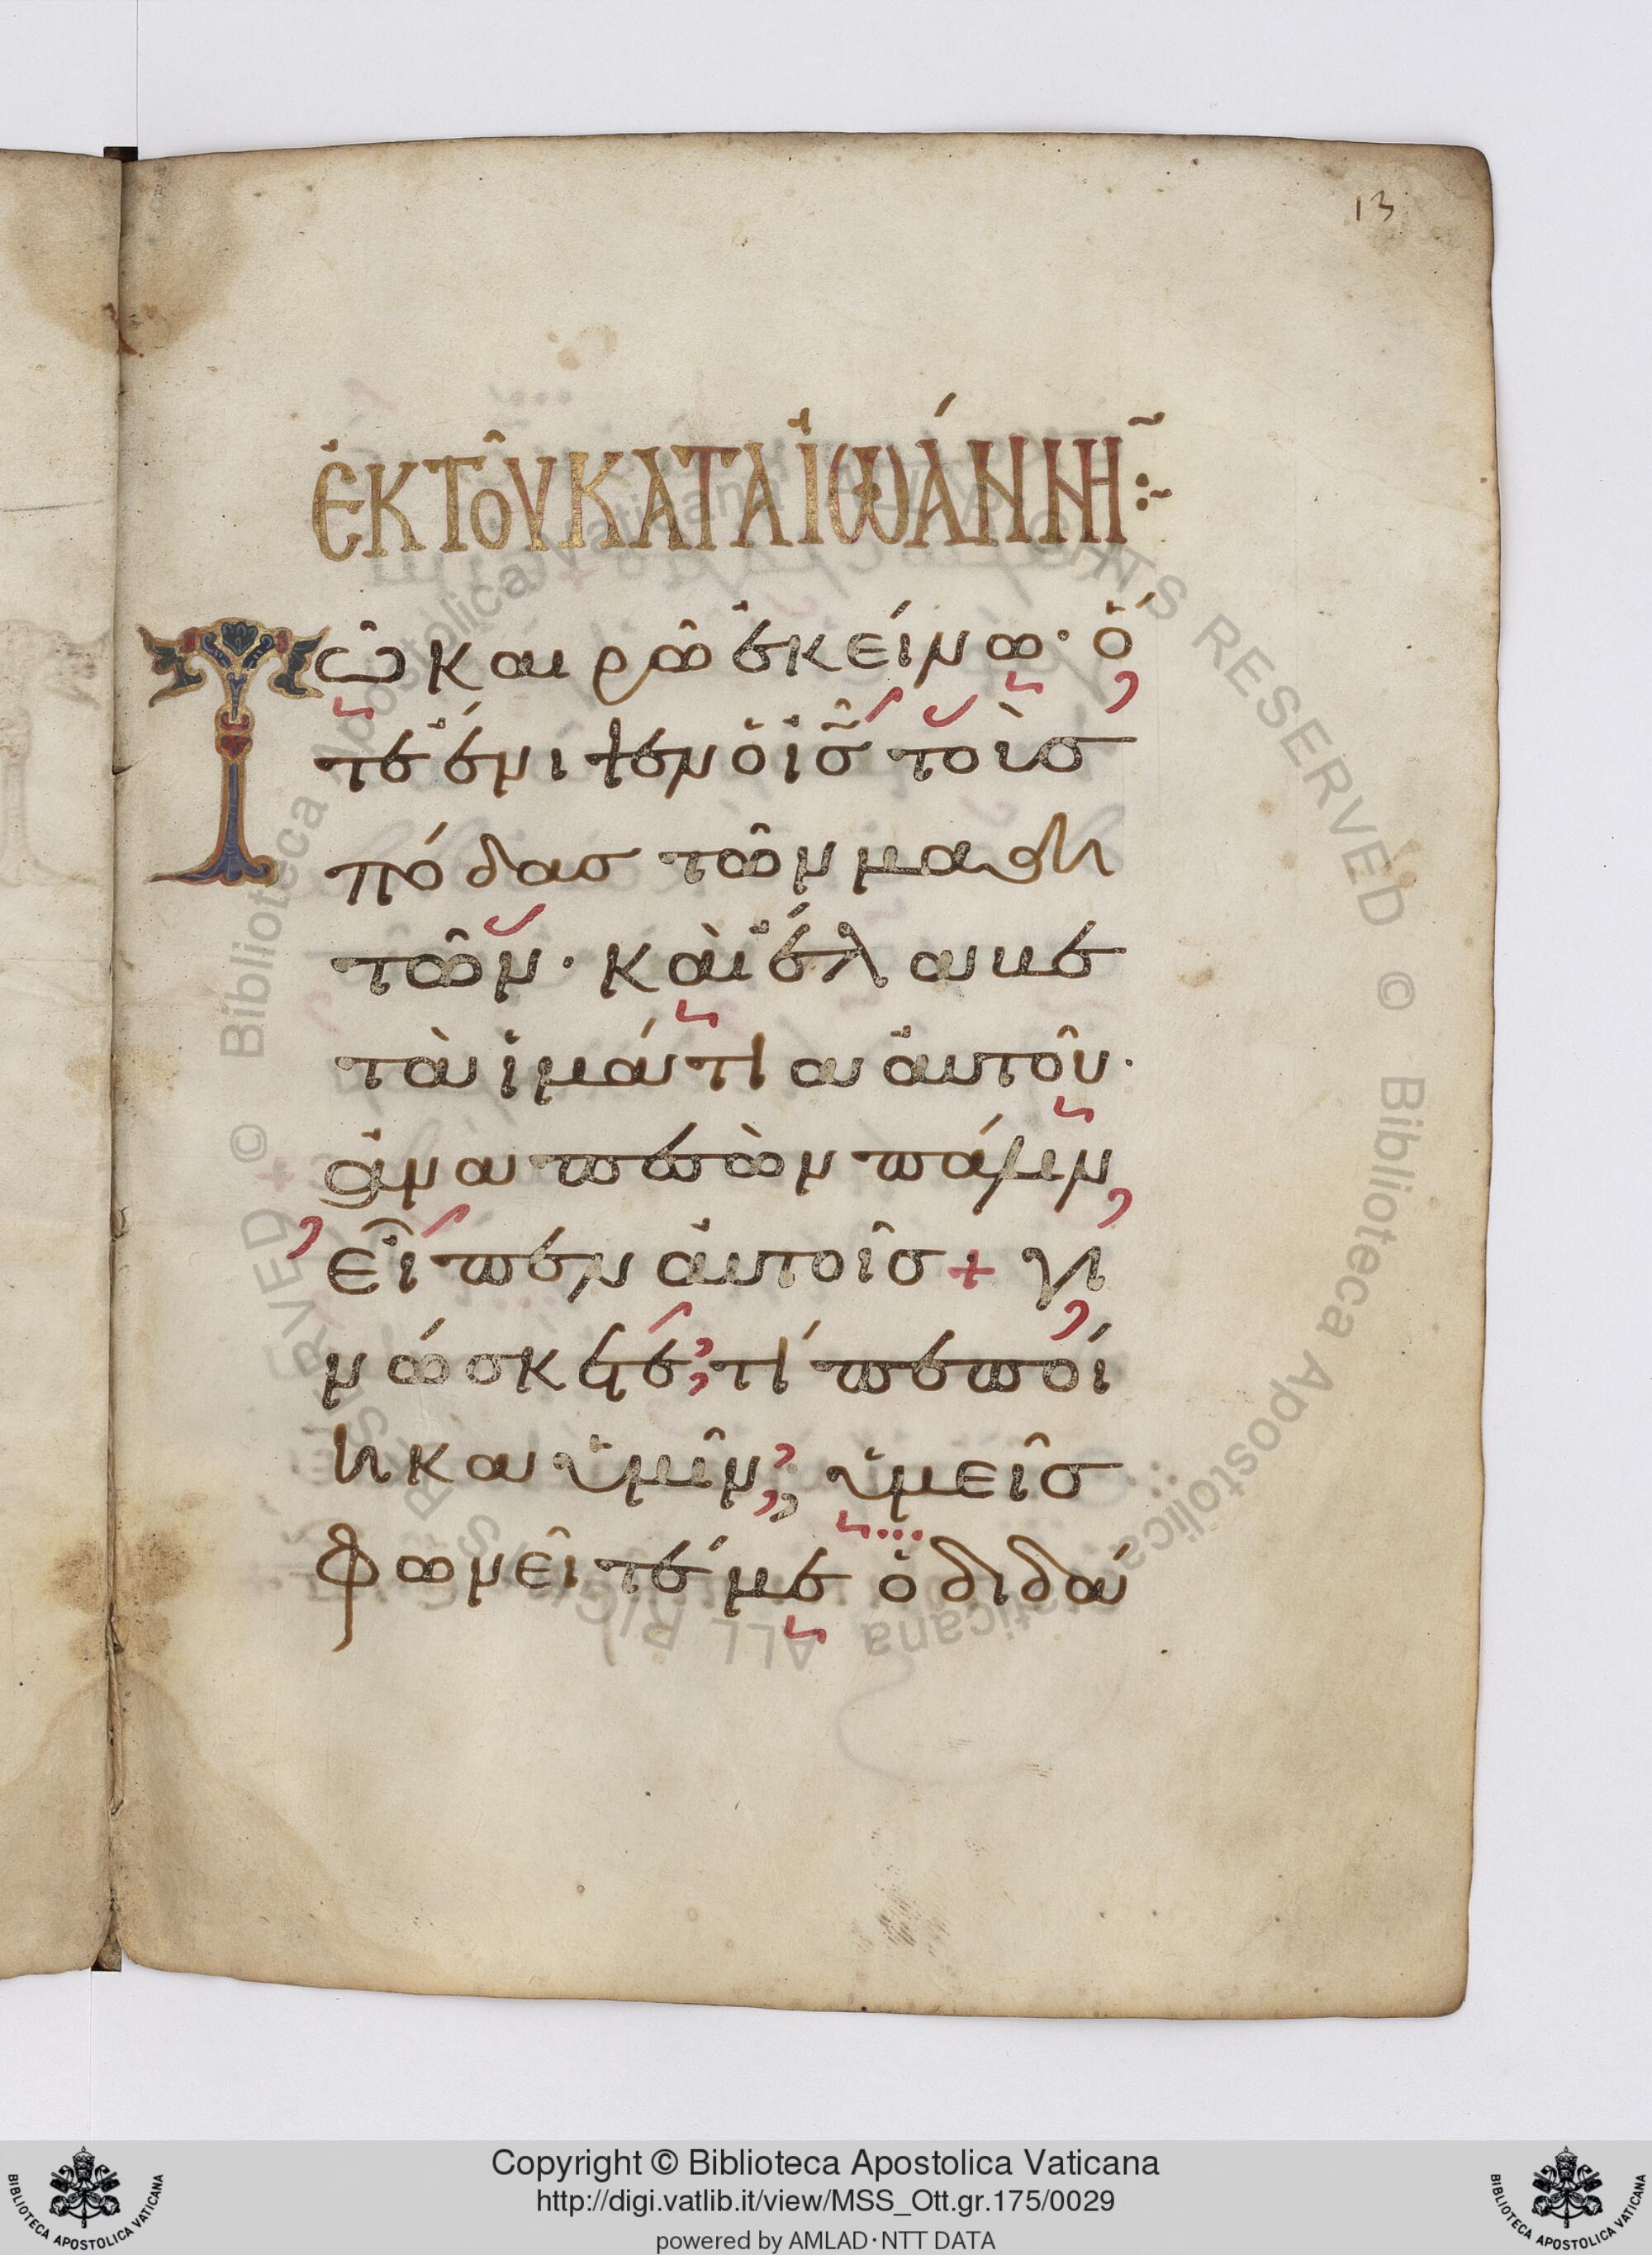 13
ἐκ τοῦ κατὰ ἰωάννη̃ν:~
Τῶ καιρῶ ἐκείνω· ὅ
τε ἔνιψεν ὁ ἰσ̃ τοὺσ
πόδασ τῶν μαθη
τῶν· καὶ ἔλαβε
τὰ ἱμάτια αὐτοῦ·
ἀναπεσὼν πάλιν
εἶπεν αὐτοῖσ + γι
νώσκετε; τί πεποί
ηκα ὑμῖν; ὑμεῖσ
φωνεῖτέ με ὁ διδά
© Biblioteca Apostolica Vaticana ALL RIGHTS RESERVED © Biblioteca Apostolica Vaticana ALL RIGHTS RESERVED
Copyright © Biblioteca Apostolica Vaticana
http://digi.vatlib.it/view/MSS_Ott.gr.175/0029
powered by AMLAD·NTT DATA
BIBLIOTECA APOSTOLICA VATICANA
BIBLIOTECA APOSTOLICA VATICANA